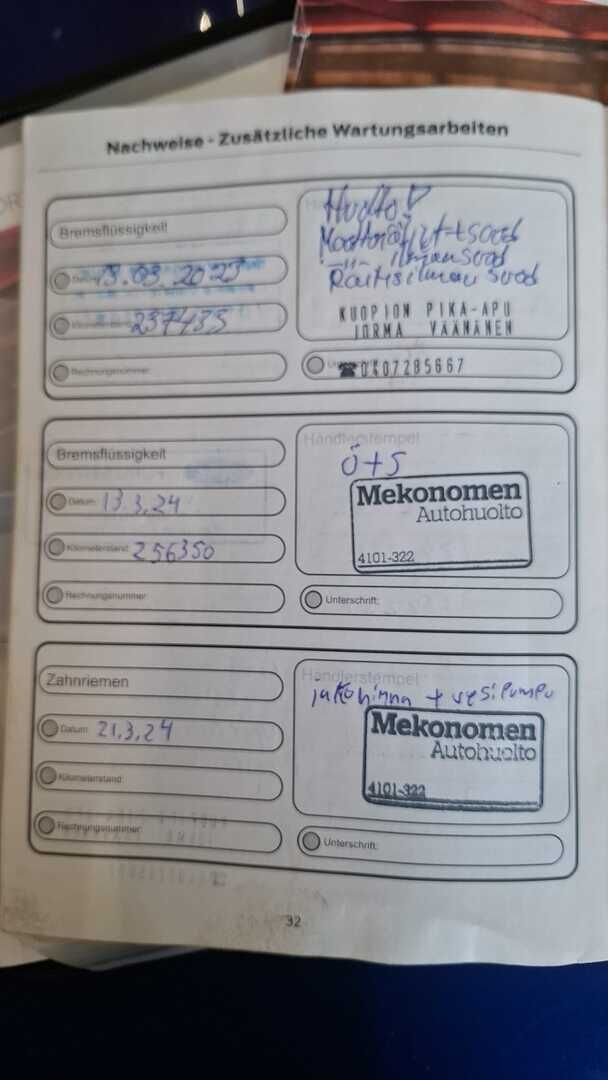 Nachweise - Zusätzliche Wartungsarbeiten
Bremsflüssigkeit
Datum:
13.03.2023
237435
Rechnungsnummer:
Huolto!
ilmansuod
Raitisilmansuod
KUOPION PIKA-APU
JORMA VÄÄNÄNEN
☎0407285667
Bremsflüssigkeit
Datum: 13.3.24
Kilometerstand: 256350
Rechnungsnummer:
Händlerstempel
Ö+S
Mekonomen
Autohuolto
4101-322
Unterschrift:
Zahnriemen
Datum: 21.3.24
Kilometerstand:
Rechnungsnummer:
Händlerstempel
jakohihna + vesipumpu
Mekonomen
Autohuolto
4101-322
Unterschrift:
32